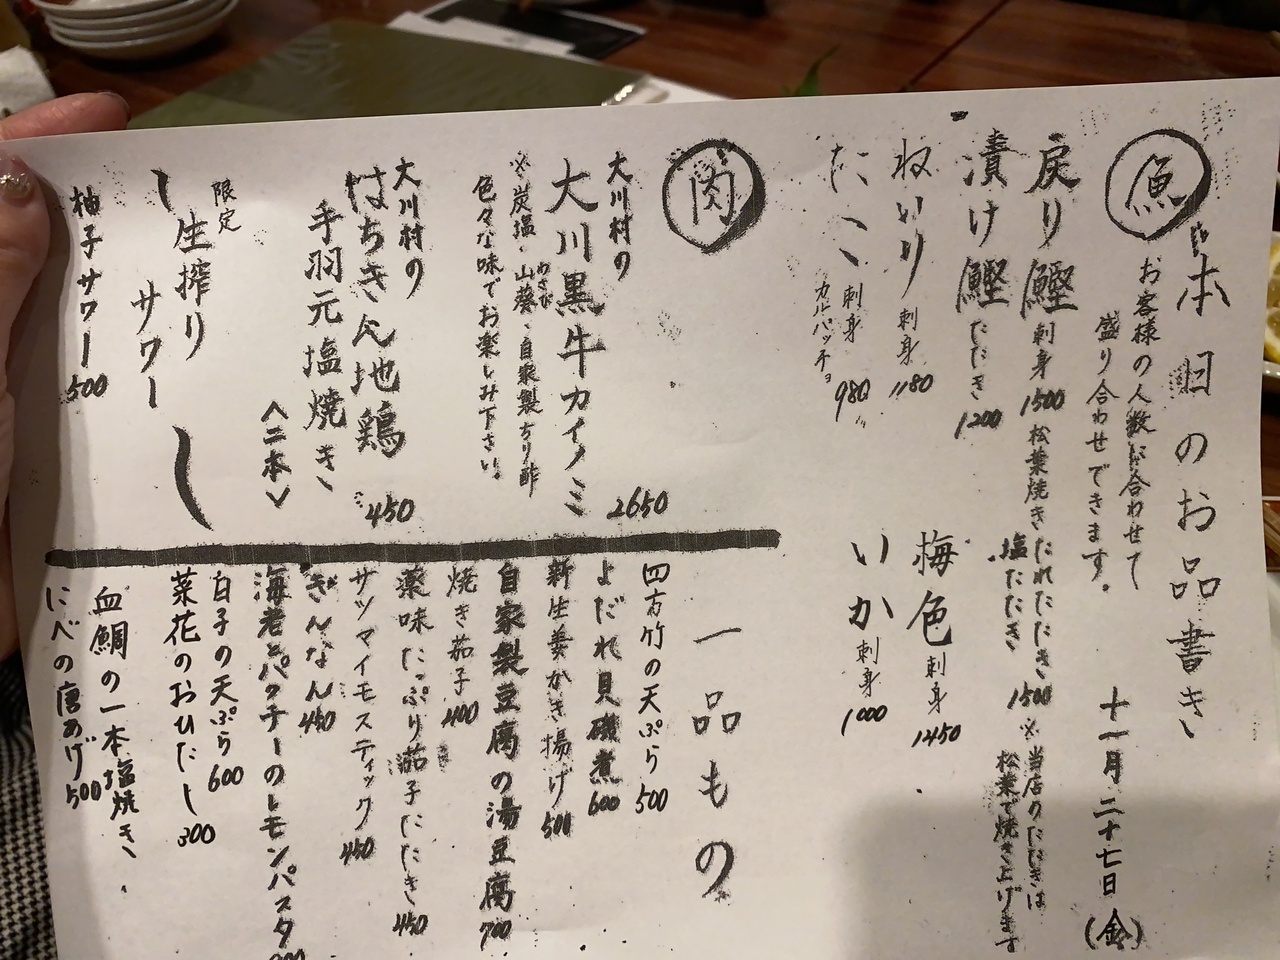 本日のお品書き
十一月二十七日(金)
魚
お客様の人数に合わせて
盛り合わせできます。
戻り鰹 刺身 1500
松葉焼き たれたたき 1500
塩たたき
※当店のたたきは
松葉で焼き上げます
漬け鰹 たたき 1200
ねいり 刺身 1180
たこ 刺身 980
カルパッチョ 〃
梅色 刺身 1450
いか 刺身 1000
肉
大川村の
大川黒牛カイノミ 2650
※炭塩・山葵・自家製ちり酢
わさび
色々な味でお楽しみ下さい。
大川村の
はちきん地鶏 450
手羽元塩焼き
〈二本〉
限定
生搾り
サワー
柚子サワー 500
一品もの
四方竹の天ぷら 500
よだれ貝磯煮 600
新生姜かき揚げ 500
自家製豆腐の湯豆腐 700
焼き茄子 400
薬味たっぷり茄子たたき 450
サツマイモスティック 450
ぎんなん 450
海老とパクチーのレモンパスタ
白子の天ぷら 600
菜花のおひたし 300
血鯛の一本塩焼き
にべの唐あげ 500